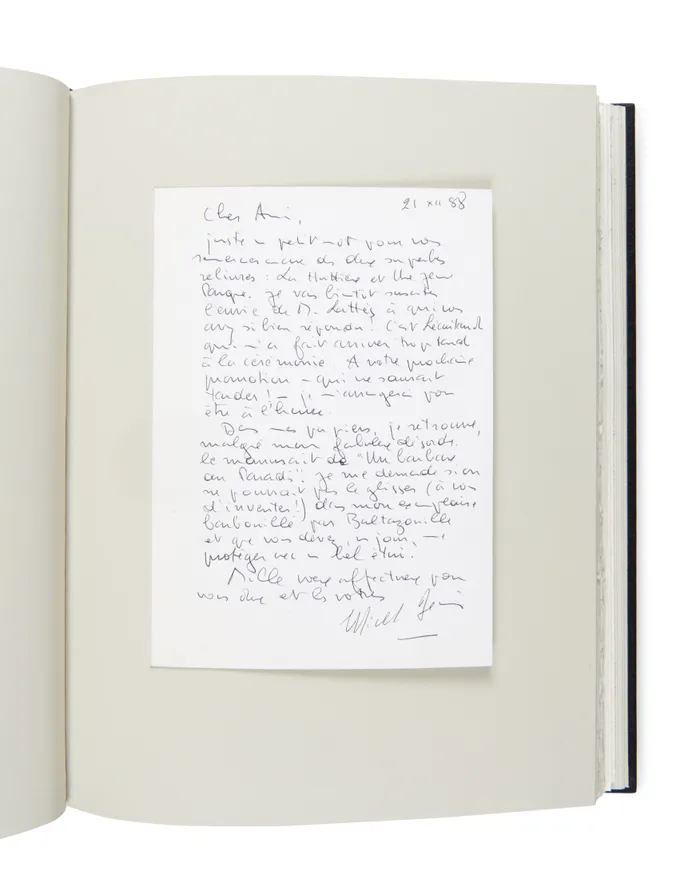 21 XII 88
Cher Ami,
juste un petit mot pour vous
remercier encore des deux superbes
reliures : La Huttière et Une Jeune
Parque. Je vais bientôt susciter
l'envie de M. Lattès à qui vous
avez si bien répondu ! C'est
qui m'a fait arriver trop tard
à la cérémonie. A votre prochaine
promotion – qui ne saurait
tarder ! – je m'arrangerai pour
être à l'heure.
Dans mes papiers, je retrouve,
malgré mon fabuleux désordre,
le manuscrit de "Un barbare
au Paradis". Je me demande si on
ne pourrait pas le glisser (à vous
d'inventer !) dans mon exemplaire
barbouillé par Baltazar
et que vous devez, un jour, me
protéger avec un bel étui.
Mille voeux affectueux pour
vous deux et les vôtres
Michel